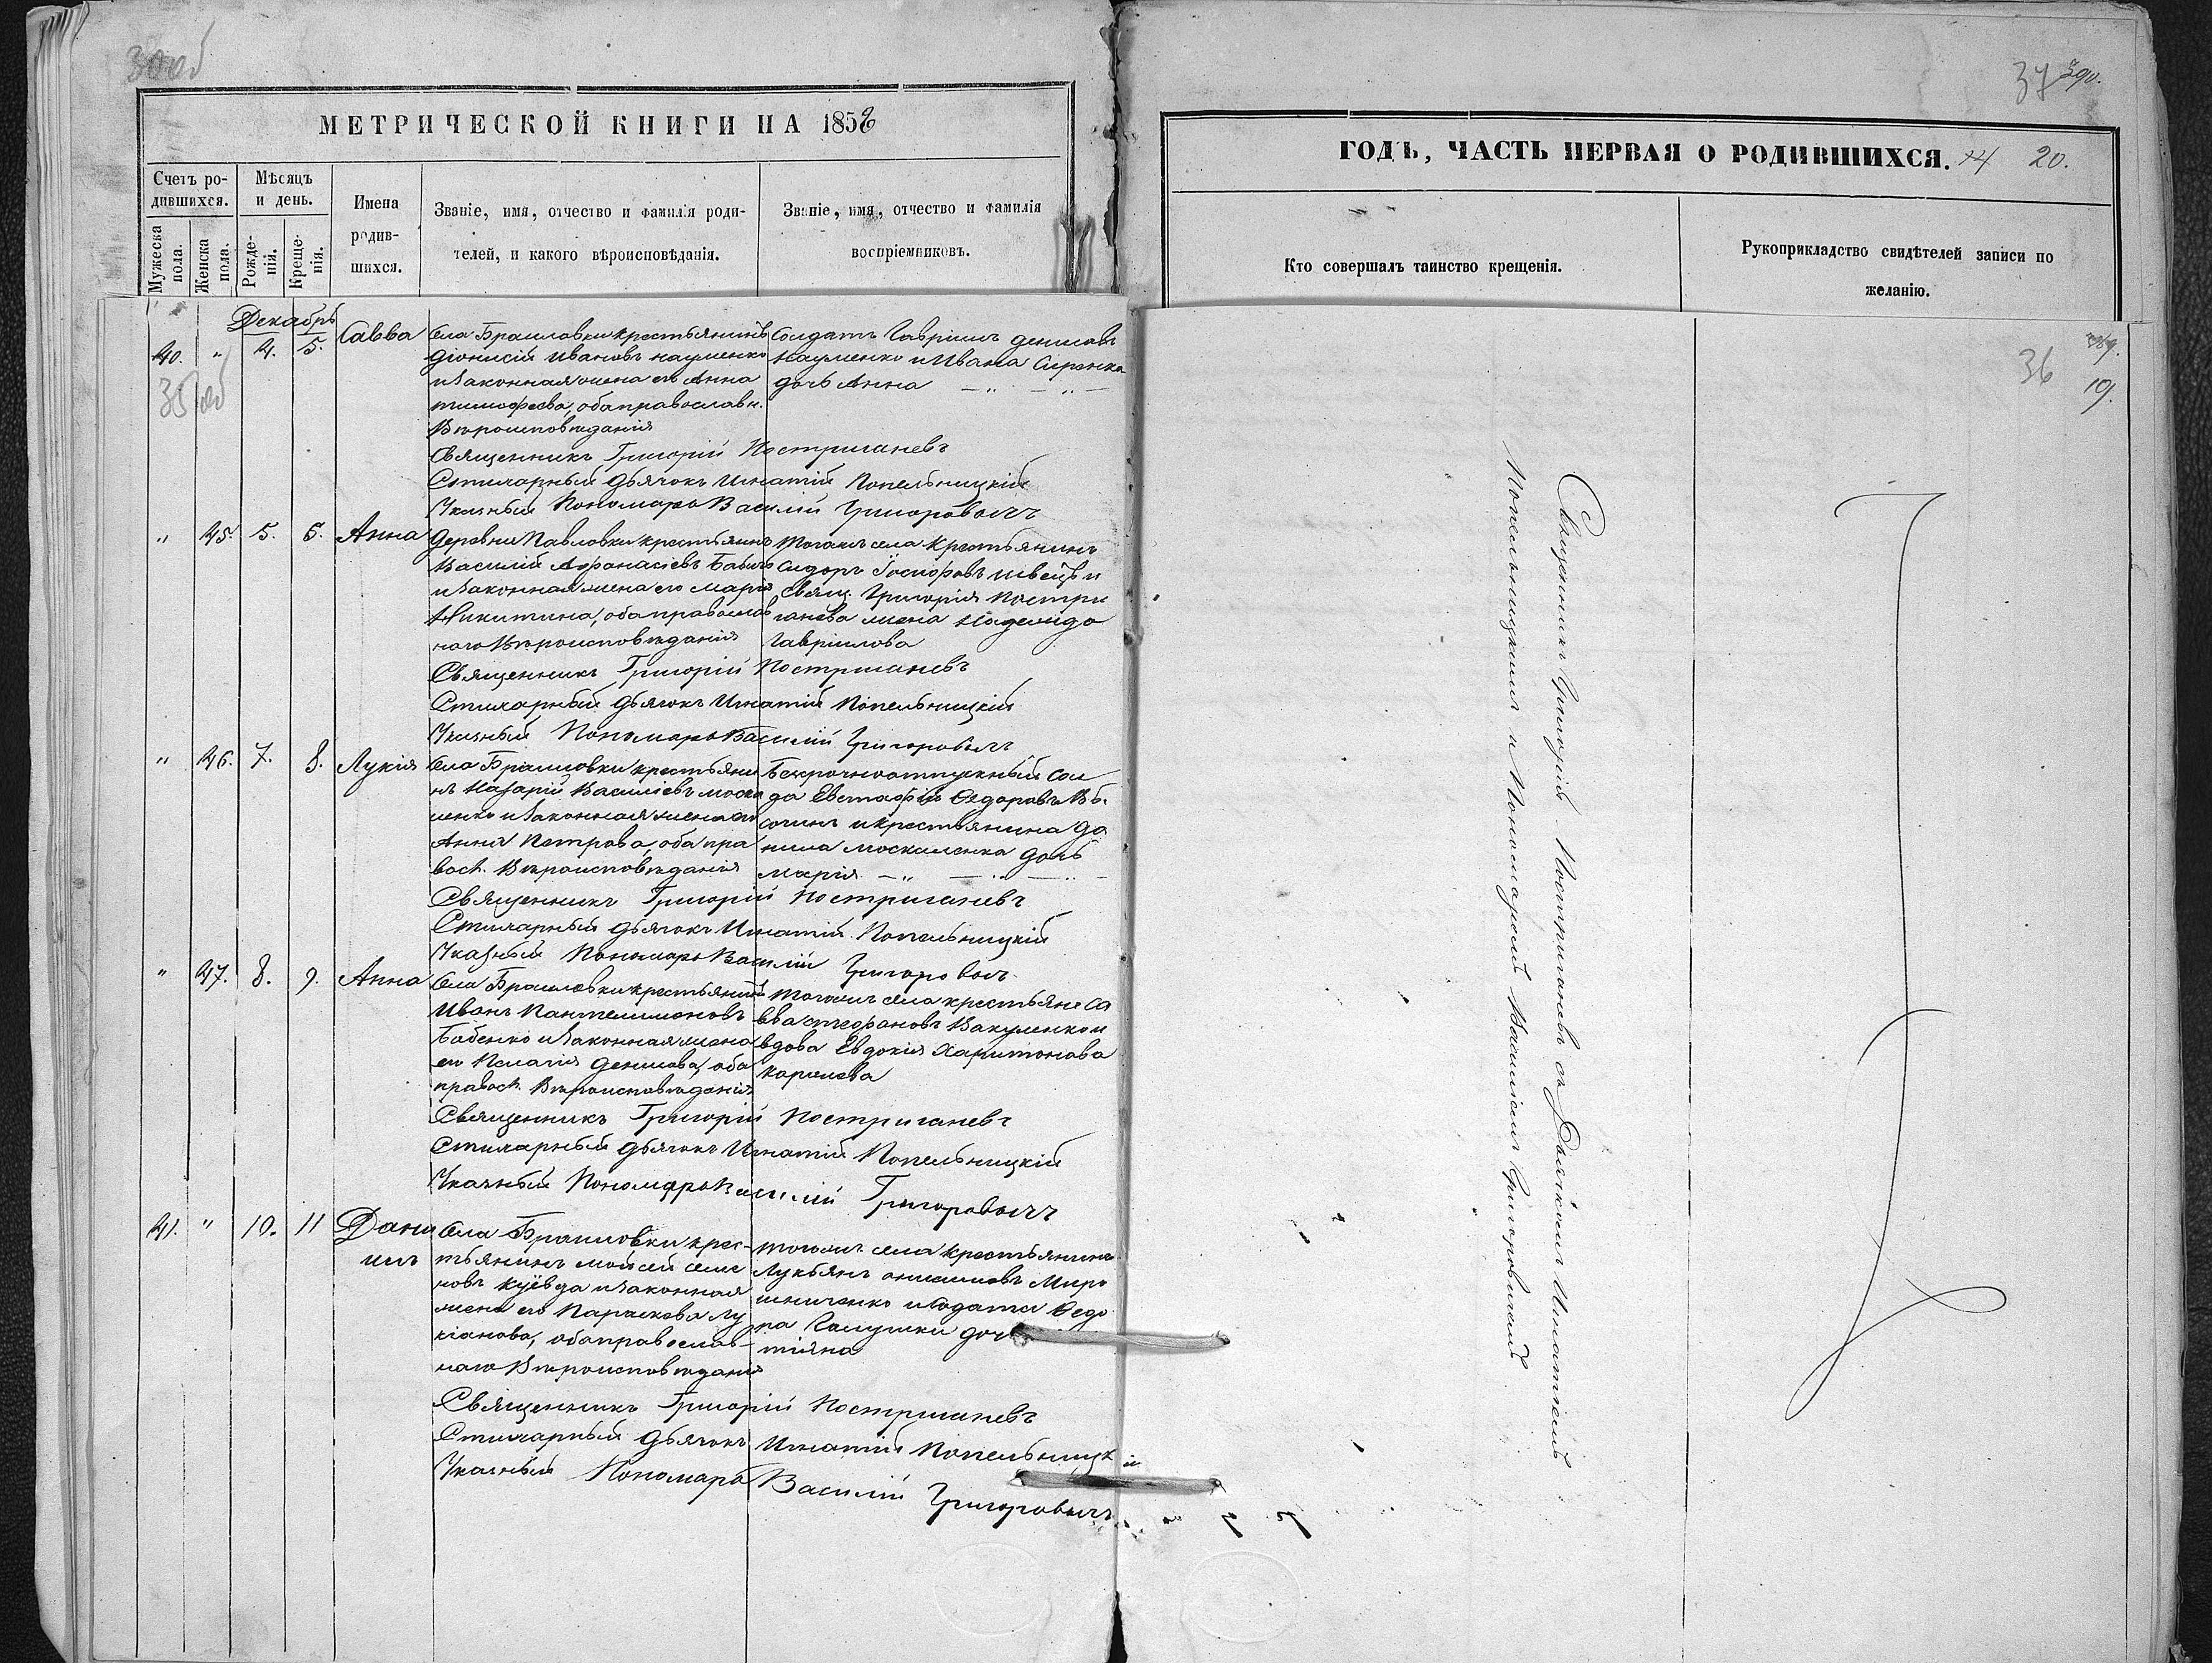 30об
37 390.
МЕТРИЧЕСКОЙ КНИГИ НА 1858
ГОДЪ, ЧАСТЬ ПЕРВАЯ О РОДИВШИХСЯ. 14 20.
Счетъ родившихся.
Мужеска пола.
Женска пола.
Мѣсяцъ и день.
Рожденія.
Крещенія.
Имена родившихся.
Званіе, имя, отчество и фамилія родителей, и какого вѣроисповѣданія.
Званіе, имя, отчество и фамилія воспріемниковъ.
Кто совершалъ таинство крещенія.
Рукоприкладство свидѣтелей записи по желанію.
Декабрь
40. „ 4. 5. Савва
35об
Села Браиловки крестьянинъ
Діонисій Ивановъ Науменко
и законная жена его Анна
Тимофеева, оба православн.
Вѣроисповѣданія
Солдатъ Гавріилъ Денисовъ
Науменко и Ивана Сиренка
дочь Анна
Священникъ Григорій Постригачевъ
Стихарный дьячокъ Игнатій Попельницкій
Указный Пономарь Василій Григоровичъ
„ 45. 5. 6. Анна
Деревни Павловки крестьянинъ
Василій Афанасіевъ Бабичъ
и законная жена его Марія
Никитина, оба православ
наго Вѣроисповѣданія
Тогожъ села Крестьянинъ
Сидоръ Іосифовъ Швецъ и
Свящ. Григорія Постри
гачева жена Надежда
Гавріилова
Священникъ Григорій Постригачевъ
Стихарный дьячокъ Игнатій Попельницкій
Указный Пономарь Василій Григоровичъ
„ 46. 7. 8. Лукія
Села Браиловки крестьяни
нъ Назарій Василіевъ Моска
ленко и законная жена его
Анна Петрова, оба пра
восл. Вѣроисповѣданія
Безсрочноотпускный сол
да Евстафій Федоровъ
и крестьянина Да
нила Москаленка дочь
Марія
Священникъ Григорій Постригачевъ
Стихарный дьячокъ Игнатій Попельницкій
Указный Пономарь Василій Григоровичъ
„ 47. 8. 9. Анна
Села Браиловки крестьянинъ
Иванъ Пантелимоновъ
Бабенко и законная жена
его Пелагія Денисова, оба
правосл. Вѣроисповѣданія
Тогожъ села крестьяне Са
вва Стефановъ Вакуленко и
вдова Евдокія Харитонова
Королева
Священникъ Григорій Постригачевъ
Стихарный дьячокъ Игнатій Попельницкій
Указный Пономарь Василій Григоровичъ
41. „ 10. 11 Дани
илъ
Села Браиловки крес-
тьянинъ Мойсей Семе
новъ Куёвда и законная
жена его Параскева Лу
кіанова, оба православ-
наго Вѣроисповѣданія
Тогожъ села Крестьянинъ
Лукьянъ Онисимовъ Миро
шниченко и Солдата Федо
ра Галушки доч
тіяна
Священникъ Григорій Постригачевъ
Стихарный дьячокъ Игнатій Попельницкій
Указный Пономарь Василій Григоровичъ
36
19.
Священникъ Григорій Постригачевъ съ Дьячкомъ Игнатіемъ
Попельницкимъ и Пономаремъ Василіемъ Григоровичемъ